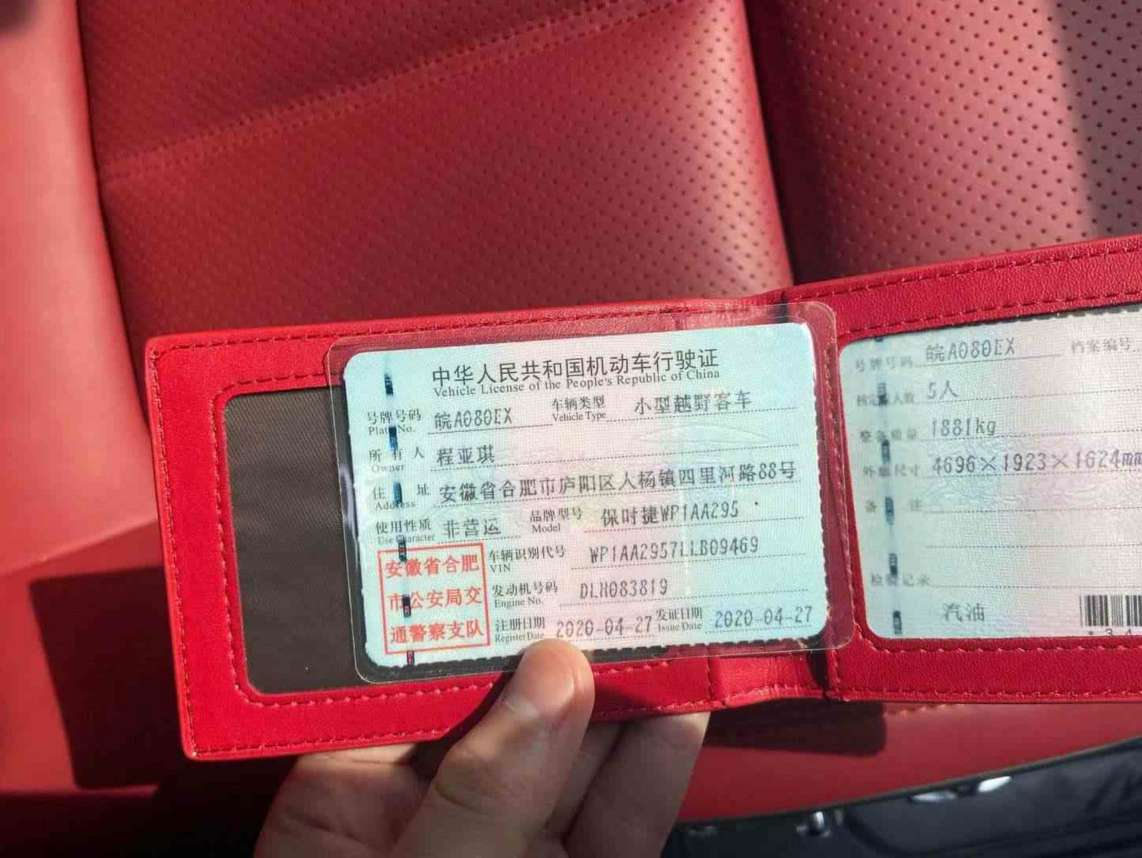 中华人民共和国机动车行驶证
Vehicle License of the People's Republic of China
号牌号码 皖A080EX 车辆类型 小型越野客车
Plate No. Vehicle Type
所有人 程亚琪
Owner
住址 安徽省合肥市庐阳区人杨镇四里河路88号
Address
使用性质 非营运 品牌型号 保时捷WP1AA295
Use Character Model
安徽省合肥
市公安局交
通警察支队
车辆识别代号 WP1AA2957LLB09469
VIN
发动机号码 DLH083819
Engine No.
注册日期 2020-04-27 发证日期 2020-04-27
Register Date Issue Date
号牌号码 皖A080EX 档案编号
核定载人数 5人
整备质量 1881kg
外廓尺寸 4696×1923×1624mm
备注
检验记录
汽油